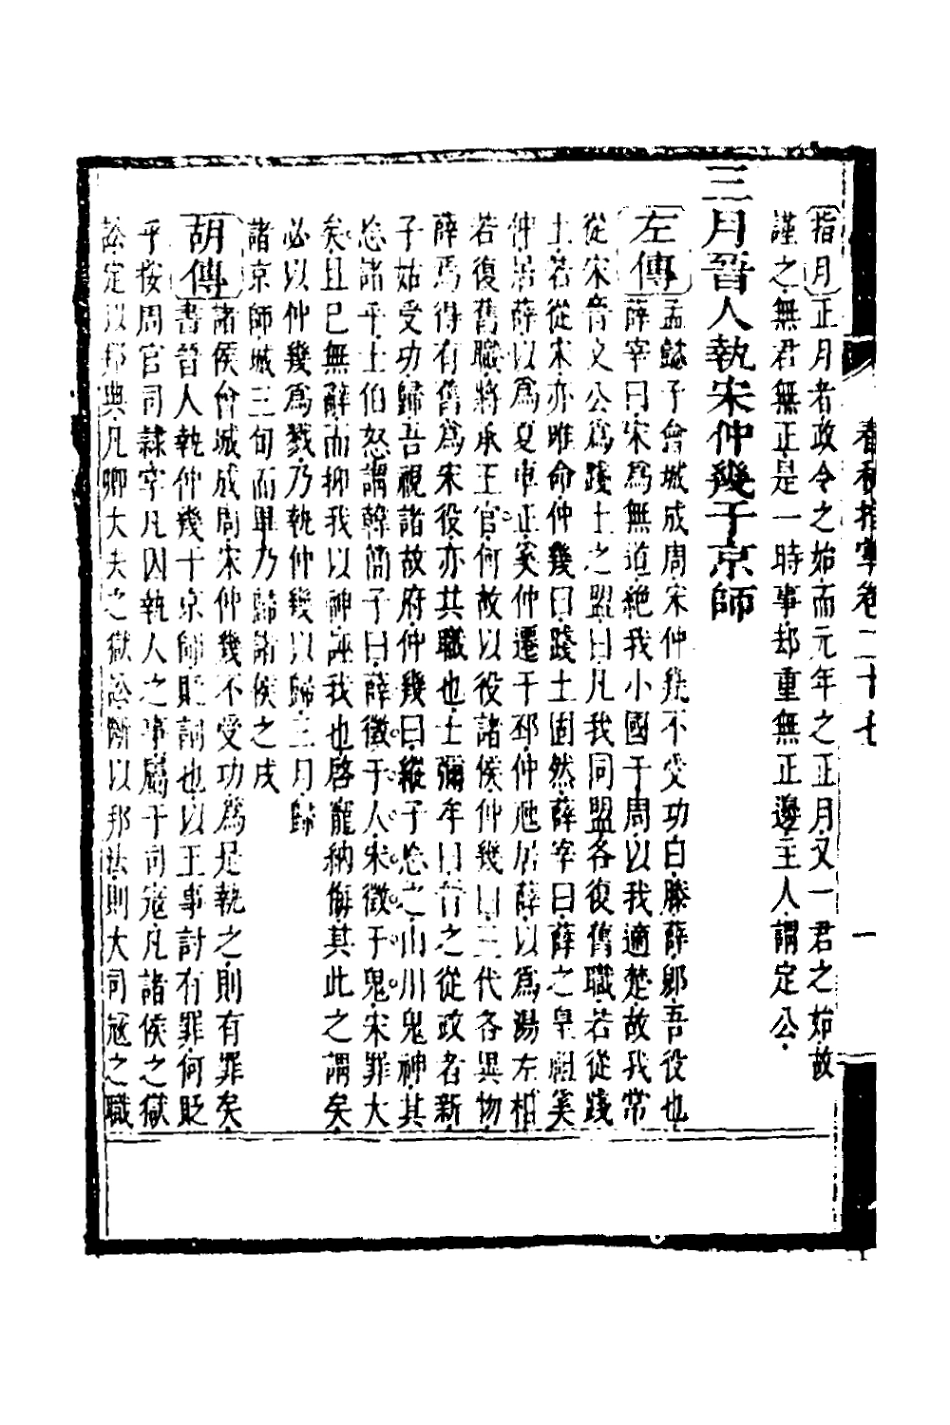 春秋指掌卷二十七
一
指月正月者政令之始而元年之正月又一君之始故
謹之無君無正是一時事却重無正邊主人謂定公
三月晉人執宋仲幾于京師
左傳孟懿子會城成周宋仲幾不受功曰滕薛郳吾役也
薛宰曰宋爲無道絶我小國于周以我適楚故我常
從宋晉文公爲踐土之盟曰凡我同盟各復舊職若從踐
土若從宋亦唯命仲幾曰踐土固然薛宰曰薛之皇祖奚
仲居薛以爲夏車正奚仲遷于邳仲虺居薛以爲湯左相
若復舊職將承王官何故以役諸侯仲幾曰三代各異物
薛焉得有舊爲宋役亦其職也士彌牟曰晉之從政者新
子姑受功歸吾視諸故府仲幾曰縱子忘之山川鬼神其
忘諸乎士伯怒謂韓簡子曰薛徵于人宋徵于鬼宋罪大
矣且已無辭而抑我以神誣我也啓寵納侮其此之謂矣
必以仲幾爲戮乃執仲幾以歸三月歸
諸京師城三旬而畢乃歸諸侯之戍
胡傳諸侯會城成周宋仲幾不受功爲是執之則有罪矣
書晉人執仲幾于京師貶詞也以王事討有罪何貶
乎按周官司隸宰凡囚執人之事屬于司寇凡諸侯之獄
訟定以邦典凡卿大夫之獄訟斷以邦法則大司寇之職